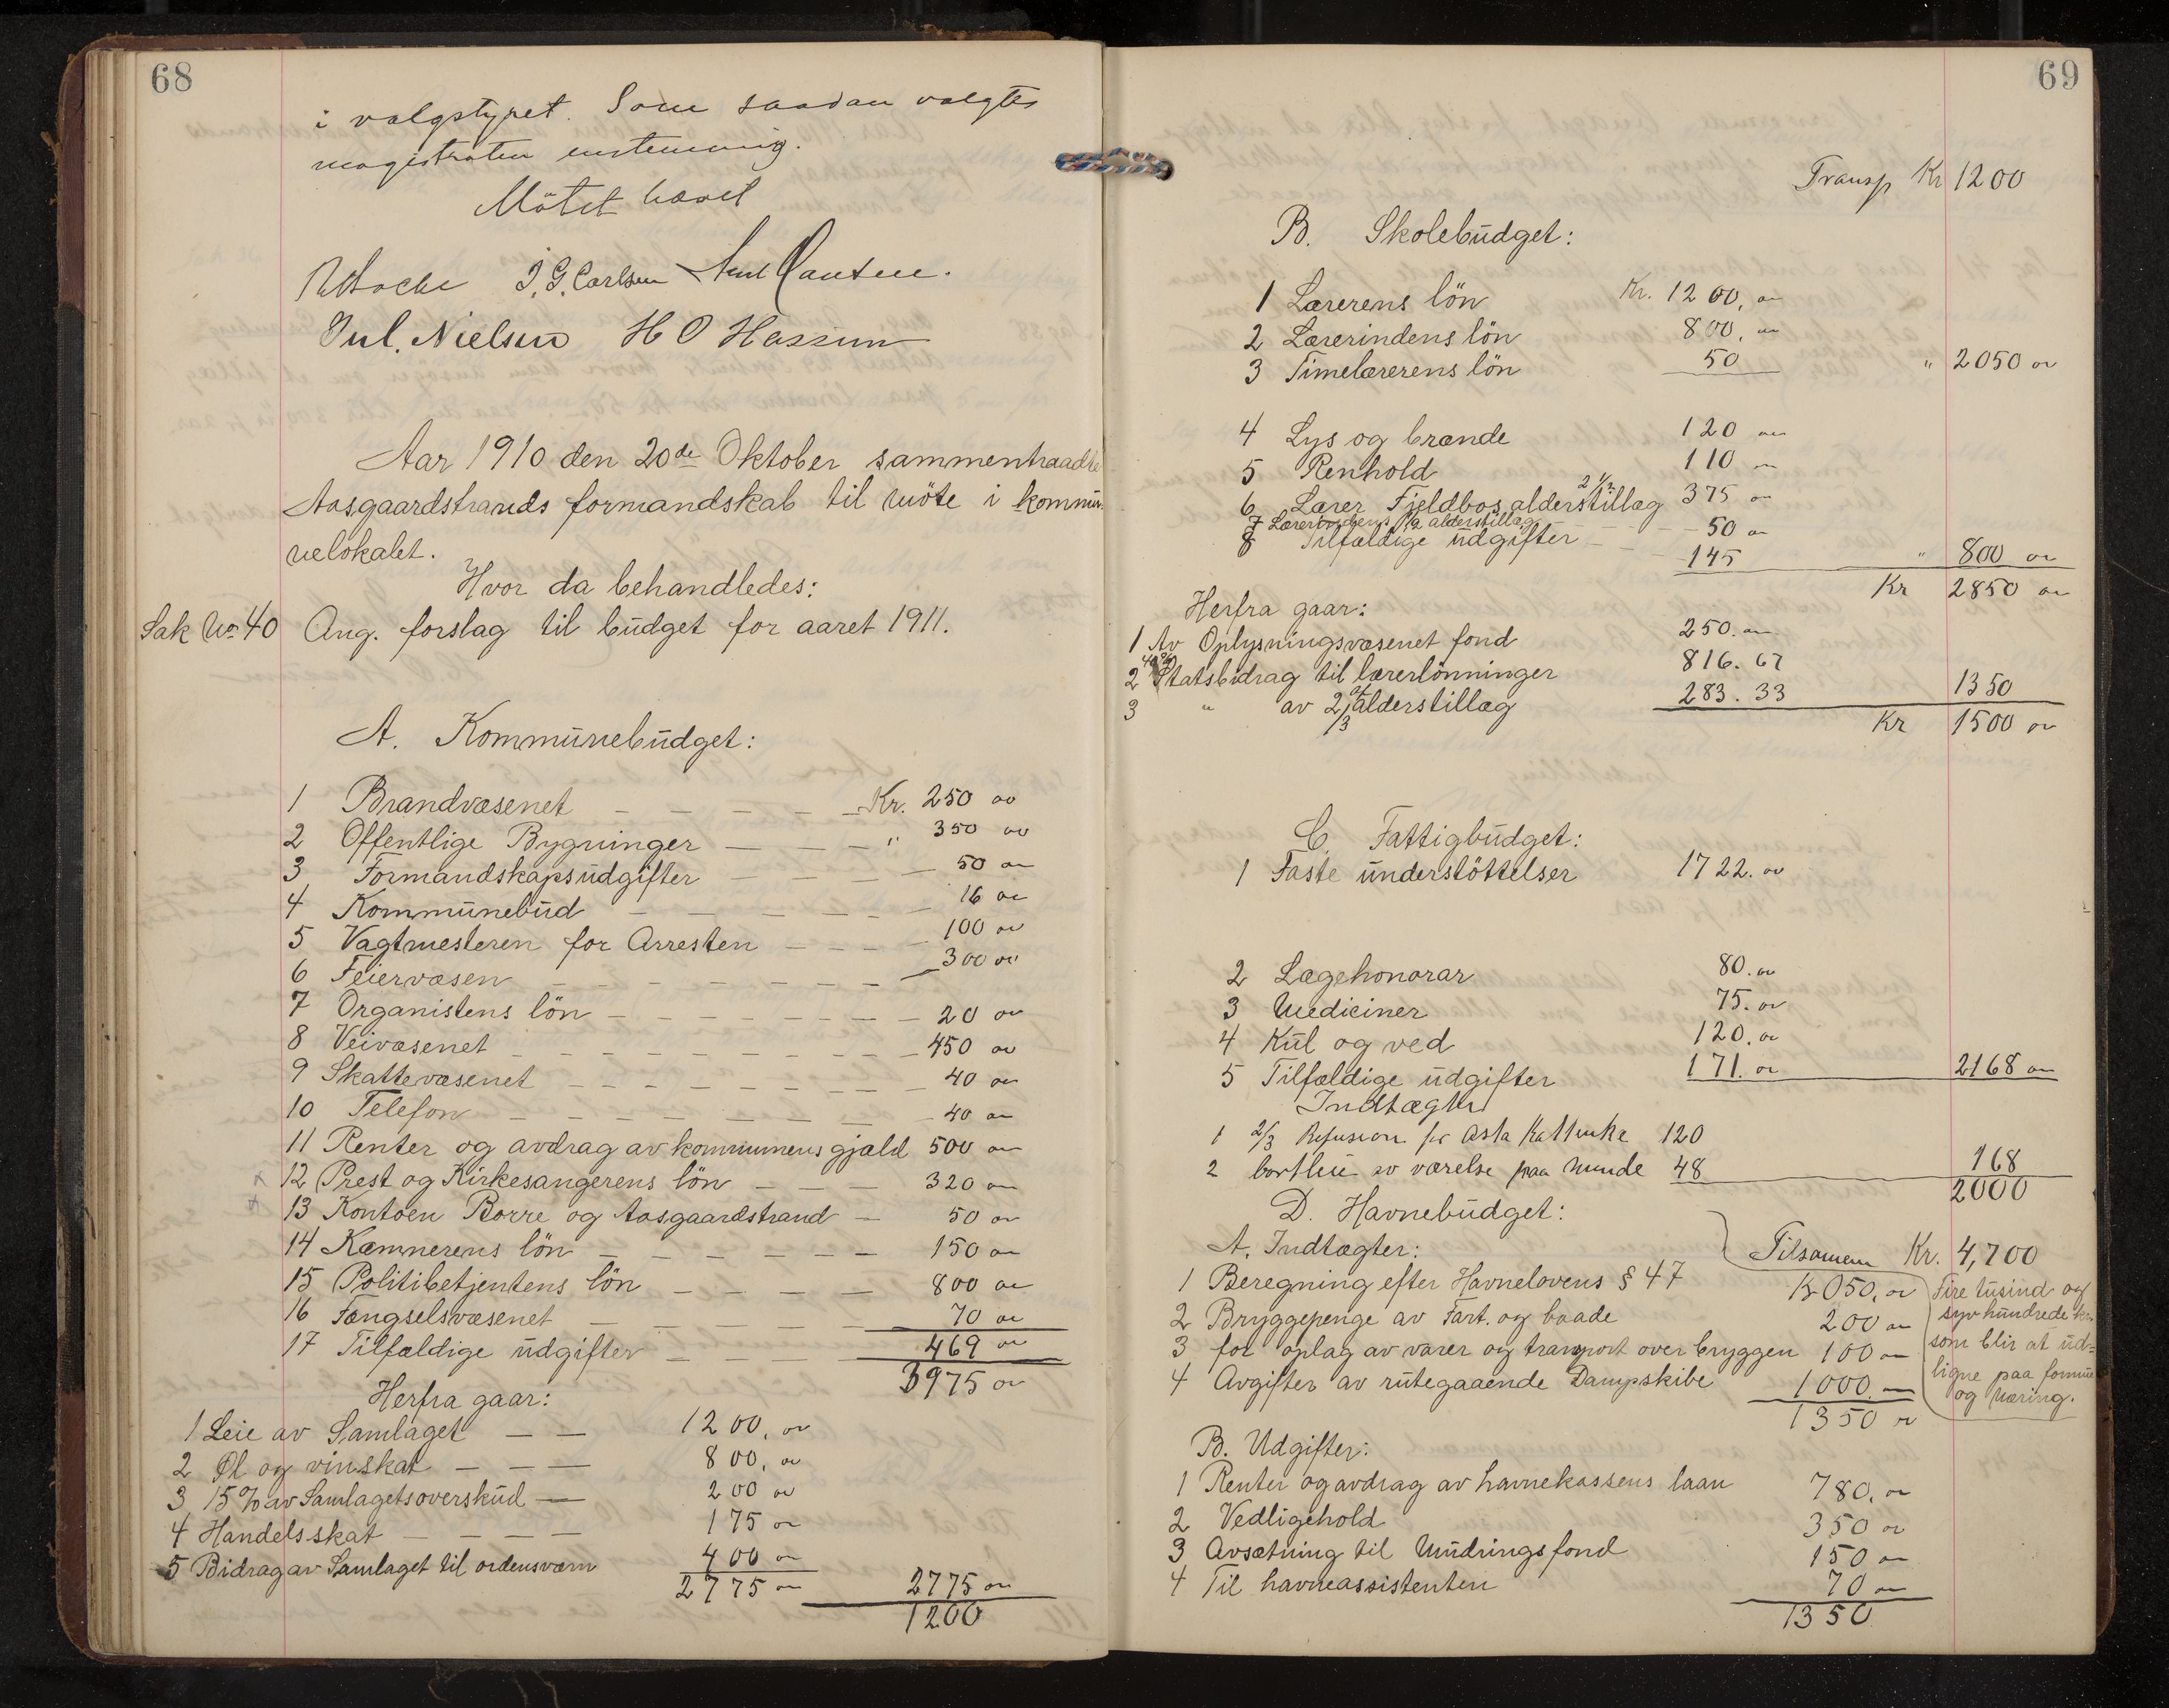 68
i valgstyret. Som saadan valgtes
magistraten enstemmig.
Mötet hævet
J. G. Carlsen
Jul. Nielsen H O Hassum
Aar 1910 den 20de Oktober sammentraadte
Aasgaardstrands formandskab til möte i kommu-
nelokalet.
Hvor da behandledes:
Sak No 40 Ang. forslag til budget for aaret 1911.
A. Kommunebudget:
1 Brandvæsenet — — — — — Kr. 250 00
2 Offentlige Bygninger — — — " 350 00
3 Formandskapsudgifter — — — — 50 00
4 Kommunebud — — — — — — 16 00
5 Vagtmesteren for Arresten — — — — 100 00
6 Feiervæsen — — — — — — — 300 00
7 Organistens lön — — — — — — — 20 00
8 Veivæsenet — — — — — — — — 450 00
9 Skattevæsenet — — — — — — — 40 00
10 Telefon — — — — — — — — 40 00
11 Renter og avdrag av kommunens gjæld 500 00
12 Prest og Kirkesangerens lön — — — 320 00
13 Kontoen Borre og Aasgaardstrand — 50 00
14 Kæmnerens lön — — — — — — 150 00
15 Politibetjentens lön — — — — 800 00
16 Fængselsvæsenet — — — — — 70 00
17 Tilfældige udgifter — — — — 469 00
3975 00
Herfra gaar:
1 Leie av Samlaget — — 1200, 00
2 Øl og vinskat — — — 800, 00
3 15 % av Samlagets overskud — 200 00
4 Handelsskat — — — — 175 00
5 Bidrag av Samlaget til ordensværn 400 00
2775 00 2775 00
1200
69
Transp Kr 1200
B. Skolebudget:
1 Lærerens lön Kr. 1200, 00
2 Lærerindens lön 800, 00
3 Timelærerens lön 50 " 2050 00
4 Lys og brænde 120 00
5 Renhold 110 00
6 Lærer Fjeldbos alderstillæg 375 00
7 alderstillæg 50 00
8 Tilfældige udgifter — 145 " 800 00
Kr 2850 00
Herfra gaar:
1 Av Oplysningsvæsenet fond 250. 00
2 Statsbidrag til lærerlönninger 816. 67
3 " av 2/3 alderstillæg 283. 33 1350
Kr 1500 00
C. Fattigbudget:
1 Faste understöttelser 1722. 00
2 Lægehonorar 80. 00
3 Mediciner 75. 00
4 Kul og ved 120. 00
5 Tilfældige udgifter 171. 00 2168 00
Indtægter
1 2/3 Refusion for Asta 120
2 bortleie av værelse paa 48 168
2000
D. Havnebudget:
A. Indtægter: Tilsamen Kr. 4,700
1 Beregning efter Havnelovens § 47 050, 00
Fire tusind og
2 Bryggepenge av Fart. og baade 200 00
syv hundrede kr.
3 for oplag av varer og transport over bryggen 100 00
som blir at ud-
4 Avgifter av rutegaaende Dampskibe 1000, 00
ligne paa formue
og næring.
1350 00
B. Udgifter:
1 Renter og avdrag av havnekassens laan 780, 00
2 Vedligehold 350 00
3 Avsætning til Mudringsfond 150 00
4 Til havneassistenten 70 00
1350